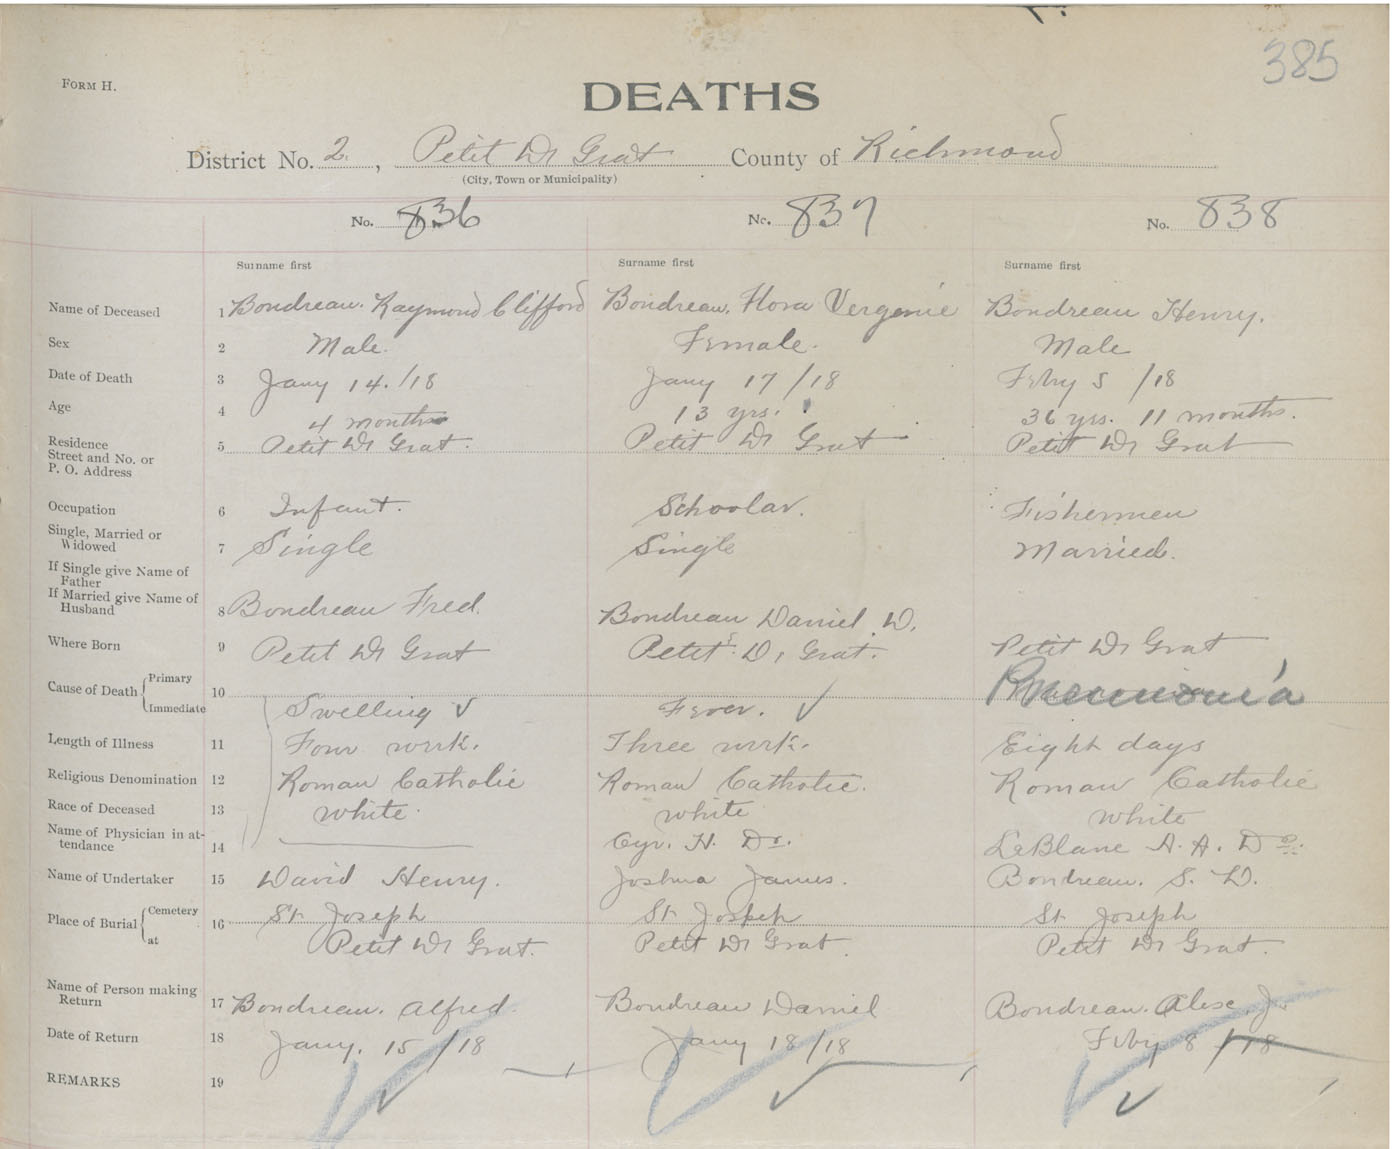 385
FORM H.
DEATHS
District No. 2, Petit Dr Grat County of Richmond
(City, Town or Municipality)
No. 836 No. 837 No. 838
Surname first Surname first Surname first
Name of Deceased 1 Bondreau. Raymond Clifford Bondreau. Flora Vergenie Bondreau Henry.
Sex 2 Male. Female. Male
Date of Death 3 Jany 14./18 Jany 17/18 Feby 5/18
Age 4 4 months 13 yrs. 36 yrs. 11 months.
Residence Street and No. or P. O. Address 5 Petit Dr Grat. Petit Dr Grat Petit Dr Grat
Occupation 6 Infant. Schoolar. Fishermen
Single, Married or Widowed 7 Single Single Married.
If Single give Name of Father
If Married give Name of Husband 8 Bondreau Fred. Bondreau Daniel. D.
Where Born 9 Petit Dr Grat Petit. D. Grat. Petit Dr Grat
Cause of Death Primary 10 Pneumonia
Immediate Swelling ✓ Fever. ✓
Length of Illness 11 Four week. Three week. Eight days
Religious Denomination 12 Roman Catholic Roman Catholic. Roman Catholic
Race of Deceased 13 white white white
Name of Physician in attendance 14 Cyr. H. Dr. LeBlanc A. A. Dr.
Name of Undertaker 15 David Henry. Joshua James. Bondreau. S. D.
Place of Burial Cemetery 16 St Joseph St Joseph St Joseph
at Petit Dr Grat. Petit Dr Grat. Petit Dr Grat.
Name of Person making Return 17 Bondreau. Alfred Bondreau Daniel Bondreau. Alex. Jr.
Date of Return 18 Jany. 15/18 Jany 18/18 Feby 8/18
REMARKS 19 ✓ ✓ ✓